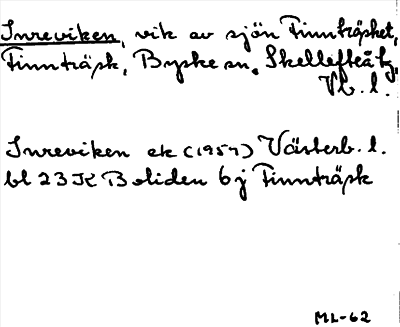 Inreviken, vik av sjön Finnträsket,
Finnträsk, Byske sn, Skellefteå tg,
Vb. l.
Inreviken ek (1957) Västerb. l.
bl 23 K Boliden 6 j Finnträsk
ML-62